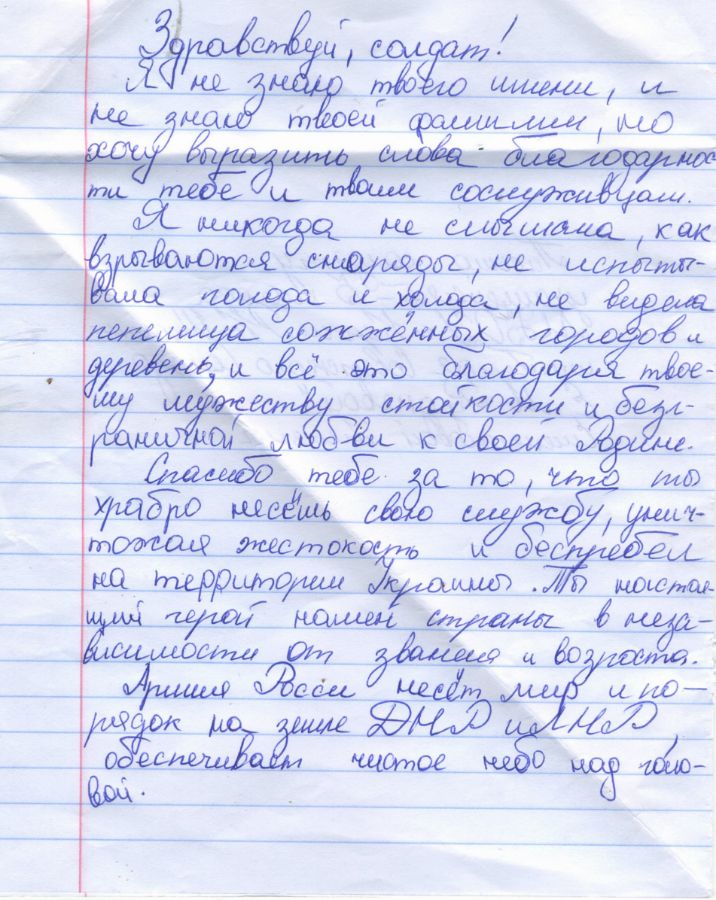 Здравствуй, солдат!
Я не знаю твоего имени, и
не знаю твоей фамилии, но
хочу выразить слова благодарнос
ти тебе и твоим сослуживцам.
Я никогда не слышала, как
взрываются снаряды, не испыты-
вала голода и холода, не видела
пепелища сожжённых городов и
деревень, и всё это благодаря твое-
му мужеству стойкости и безг-
раничной любви к своей Родине.
Спасибо тебе за то, что ты
храбро несёшь свою службу, унич-
тожая жестокость и беспредел
на территории Украины. Ты настоя-
щий герой нашей страны в неза-
висимости от звания и возраста.
Армия Росси несёт мир и по-
рядок на земле ДНР и ЛНР,
обеспечивает чистое небо над голо-
вой.